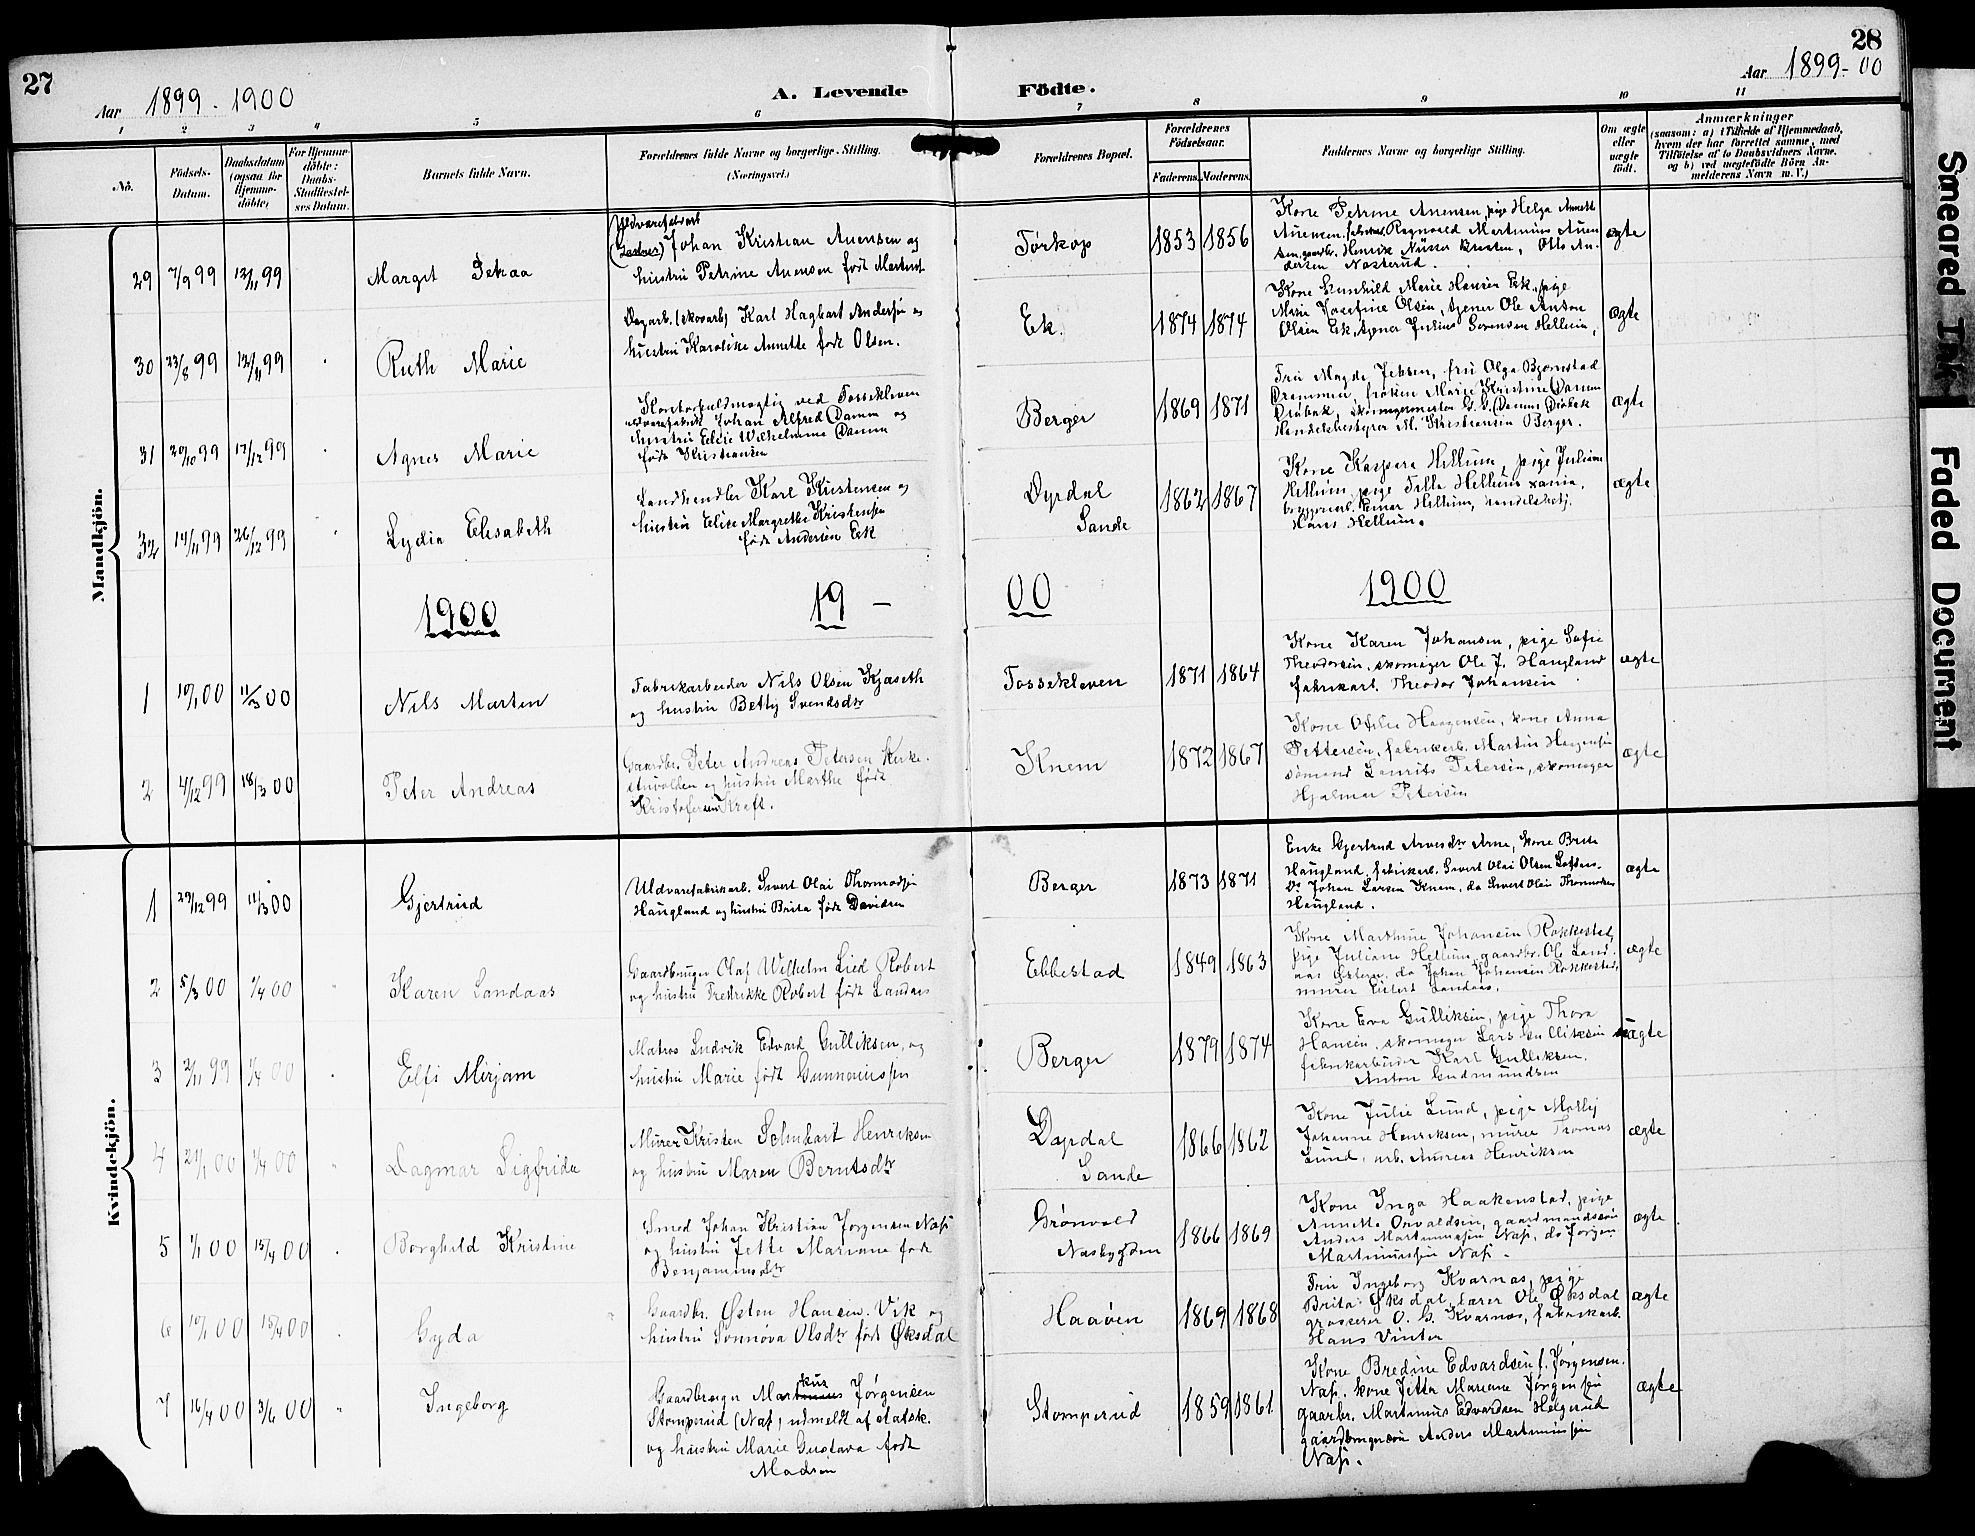 27
28
Aar 1899 - 1900
A. Levende
Födte.
Aar 1899-00
1 2 3 4 5 6 7 8 9 10 11
No.
Födsels-
Datum.
Daabsdatum
(ogsaa for
Hjemme-
döbte)
For Hjemme-
döbte:
Daabs-
Stadfæstel-
ses Datum.
Barnets fulde Navn.
Forældrenes fulde Navne og borgerlige Stilling.
(Næringsvei.)
Forældrenes Bopæl.
Forældrenes
Födselsaar.
Faderens. Moderens.
Faddernes Navne og borgerlige Stilling.
Om ægte
eller
uægte
födt.
Anmærkninger
(saasom: a) i Tilfælde af Hjemmedaab,
hvem der har forrettet samme, med
Tilföielse af to Daabsvidners Navne.
og b) ved uegtefödte Börn An-
melderens Navn m. V.)
Mandkjön.
29 7/9 99 12/11 99 Margit
Johan Kristian Auensen og
hustru Petrine Auensen født
Tørkop 1853 1856
Kone Petrine Auensen, pige Helga Annette
Auensen, Ragnvald Martinius Auen
sen, gaardbr. Henrik Braaten, Otto An-
dersen Nasterud.
ægte
30 23/8 99 12/11 99 Ruth Marie
Dagarb. (skovarb) Karl Hagbart Andersen og
hustru Karoline Annette født Olsen.
Ek. 1874 1874
Kone Gunhild Marie Hansen Ek, pige
Marie Josefine Olsen, tjener Ole Anton
Olsen Ek, tjener Julius Sorensen Hellum,
ægte
31 20/10 99 17/12 99 Agnes Marie
Kontorfuldmægtig ved Fossekleven
uldvarefabrik Johan Alfred Damm og
hustru Elise Wilhelmine Damm
født Kristiansen
Berger 1869 1871
Fru Magda Jebsen, fru Olga Bjørnstad
Drammen, frøken Marie Kristine Damm
Drøbak, skomagermester G. G. Damm Drøbak
Handelsbestyrer M. Kristiansen Berger.
ægte
32 14/11 99 26/12 99 Lydia Elisabeth
Landhandler Karl Kristensen og
hustru Elise Margrethe Kristensen
født Andersen Ek
Dyrdal
Sande
1862 1867
Kone Kaspara Hellum, pige Juliane
Hellum, pige Tilla Hellum,
bryggeriarb. Einar Hellum, handelsbetj.
Hans Hellum.
ægte
1900 19 - 00 1900
1 10/1 00 11/3 00 Nils Martin
Fabrikarbeider Nils Olsen Kjaseth
og hustru Betty Svendsdtr
Fossekleven 1871 1864
Kone Karen Johansen, pige Sofie
Theodorsen, skomager Ole J. Haugland
fabrikarb. Theodor Johansen
ægte
2 4/12 99 18/3 00 Peter Andreas
Gaardbr. Peter Andreas Petersen Kirke-
og hustru Marthe født
Kristofersen Kraft.
Knem 1872 1867
Kone Otilie Haagensen, kone Anna
Pettersen, fabrikarb. Martin Haagensen
sømand Laurits Petersen, skomager
Hjalmar Petersen
ægte
Kvindekjön.
1 29/12 99 11/3 00 Gjertrud
Uldvarefabrikarb. Sivert Olai Thormodsen
Haugland og hustru Brita født Davidsen
Berger 1873 1871
Enke Gjertrud Arnesdtr Arne, kone Brita
Haugland, fabrikarb. Sivert Olai Olsen
Do Johan Larsen Knem, do Sivert Olai Thormodsen
Haugland.
ægte
2 5/3 00 1/4 00 Karen Landaas
Gaardbruger Olaf Wilhelm Lied Robert
og hustru Fredrikke Robert født Landaas
Ebbestad 1849 1863
Kone Marthine Johansen Rokkestad,
pige Juliane Hellum, gaardbr. Ole Land-
aas Østern, do Johan Johansen Rokkestad,
murer Eilert Landaas.
ægte
3 2/11 99 1/4 00 Elfi Mirjam
Matros Ludvik Edvard Gulliksen, og
hustru Marie født Gunneriussen
Berger 1879 1874
Kone Eva Gulliksen, pige Thora
Hansen, skomager Lars Gulliksen
fabrikarbeider Karl Gulliksen.
Anton Gudmundsen
ægte
4 21/1 00 1/4 00 Dagmar Sigfrida
Murer Kristen Schubart Henriksen
og hustru Maren Berntsdtr
Dyrdal
Sande
1866 1862
Kone Julie Lund, pige Molly
Johanne Henriksen, murer Thomas
Lund, arb. Andreas Henriksen
ægte
5 1/1 00 15/4 00 Borghild Kristine
Smed Johan Kristian Jørgensen Næss
og hustru Jette Mariane født
Benjaminsdtr
Grønvold
Nasbygden
1866 1869
Kone Inga Haakenstad, pige
Annette Osvaldsen, gaardmandssøn
Anders Martinussen Næss, do Jørgen
Martinussen Næss.
ægte
6 10/1 00 15/4 00 Gyda
Gaardbr. Østen Hansen Vik og
hustru Sønnøva Olsdtr født Øksdal
Haaøen 1869 1868
Fru Ingeborg Kvarnæs, pige
Brita Øksdal, lærer Ole Øksdal
grosserer O. G. Kvarnæs, fabrikarb.
Hans Vinter
ægte
7 16/4 00 3/6 00 Ingeborg
Gaardbruger Markus Jørgensen
Stomperud (Næss) udmeldt af statsk.
og hustru Marie Gustava født
Madsen
Stomperud 1859 1861
Kone Bredine Edvardsen f. Jørgensen
Næss, kone Jitta Mariane Jørgensen
gaarbr. Martinius Edvardsen Helgerud
gaardbrugersøn Anders Martinussen
Næss.
ægte
Smeared Ink
Faded Document